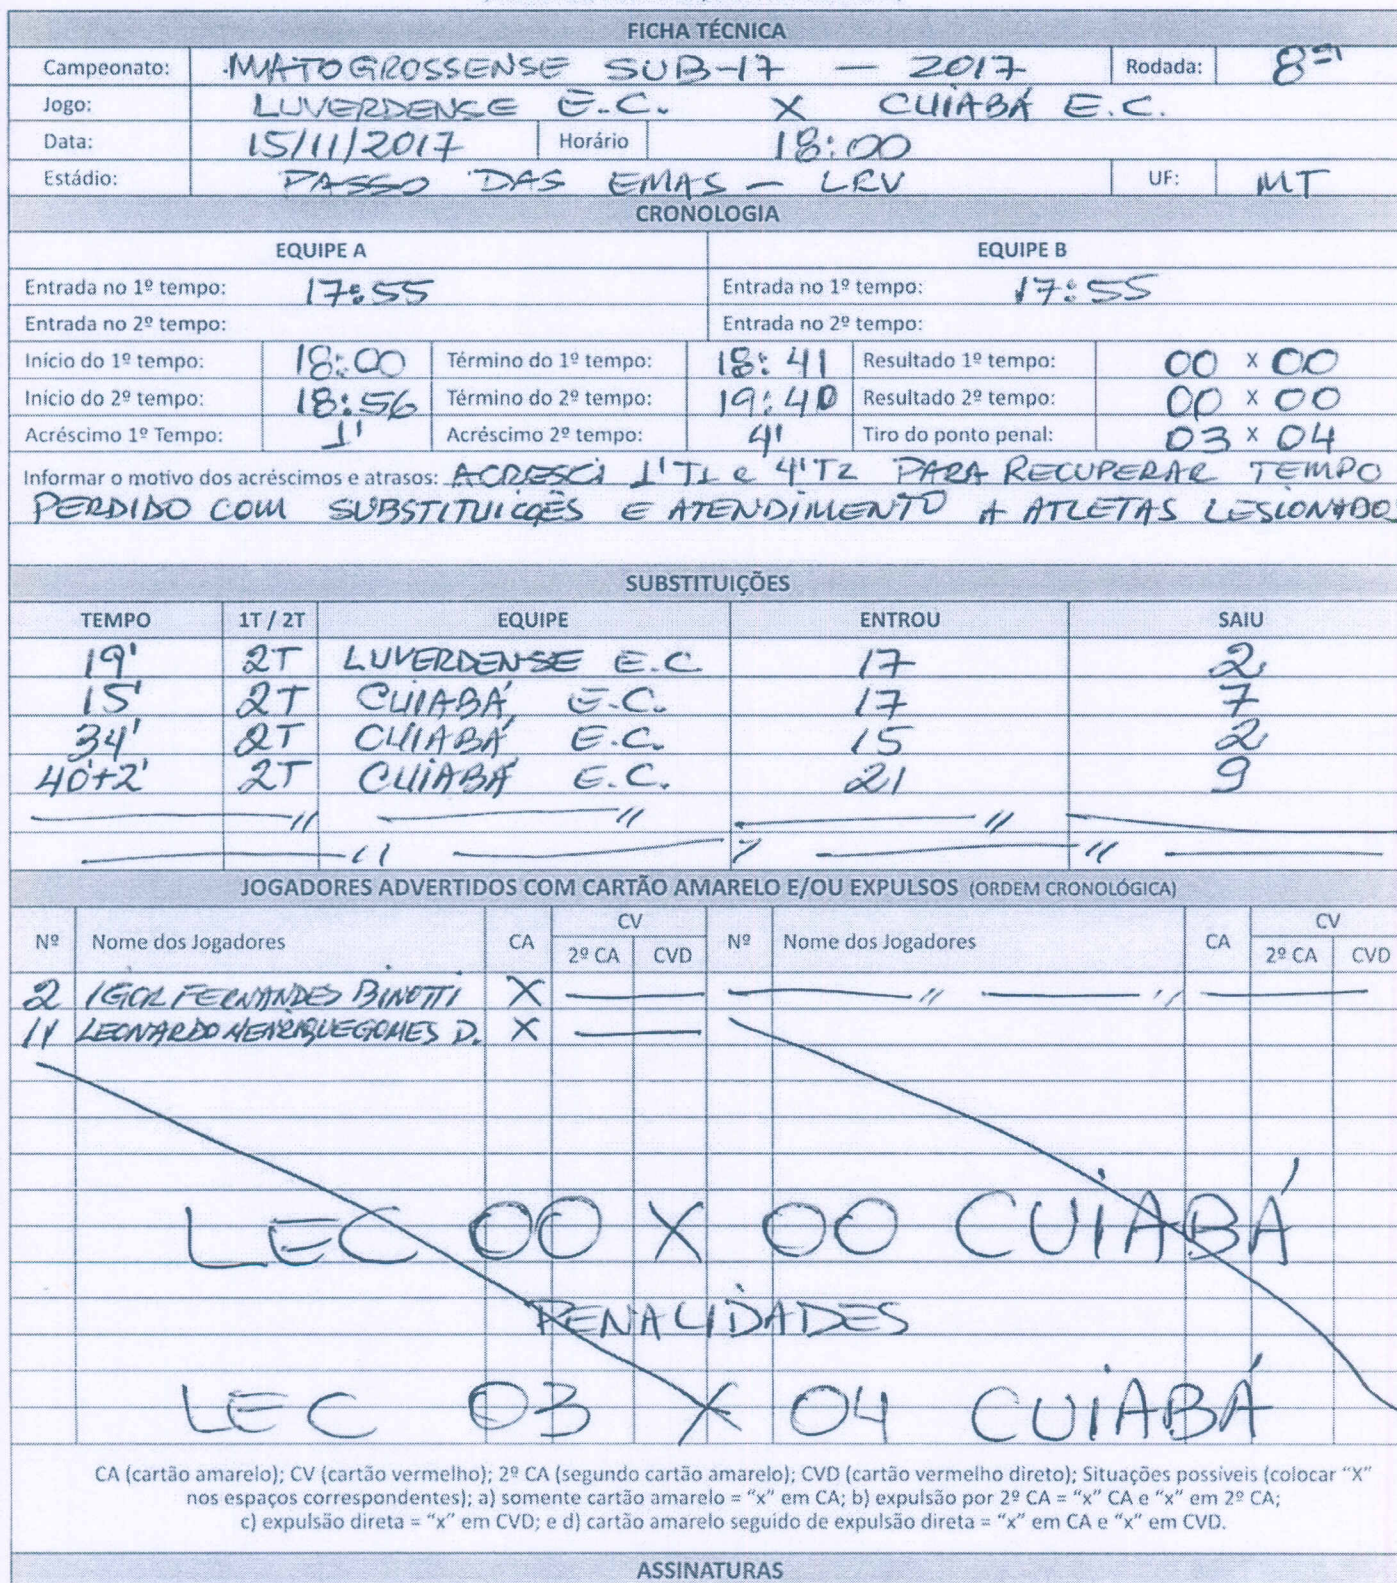 FICHA TÉCNICA
Campeonato: MATOGROSSENSE SUB-17 — 2017 Rodada: 8ª
Jogo: LUVERDENSE E.C. X CUIABÁ E.C.
Data: 15/11/2017 Horário 18:00
Estádio: PASSO DAS EMAS — LRV UF: MT
CRONOLOGIA
EQUIPE A EQUIPE B
Entrada no 1º tempo: 17:55 Entrada no 1º tempo: 17:55
Entrada no 2º tempo: Entrada no 2º tempo:
Início do 1º tempo: 18:00 Término do 1º tempo: 18:41 Resultado 1º tempo: 00 x 00
Início do 2º tempo: 18:56 Término do 2º tempo: 19:40 Resultado 2º tempo: 00 x 00
Acréscimo 1º Tempo: 1' Acréscimo 2º tempo: 4' Tiro do ponto penal: 03 x 04
Informar o motivo dos acréscimos e atrasos: ACRESCI 1'T1 e 4'T2 PARA RECUPERAR TEMPO
PERDIDO COM SUBSTITUICÕES E ATENDIMENTO A ATLETAS LESIONADOS
SUBSTITUIÇÕES
TEMPO 1T / 2T EQUIPE ENTROU SAIU
19' 2T LUVERDENSE E.C 17 2
15' 2T CUIABÁ E.C. 17 7
34' 2T CUIABÁ E.C. 15 2
40'+2' 2T CUIABÁ E.C. 21 9
JOGADORES ADVERTIDOS COM CARTÃO AMARELO E/OU EXPULSOS (ORDEM CRONOLÓGICA)
Nº Nome dos Jogadores CA CV 2º CA CVD Nº Nome dos Jogadores CA CV 2º CA CVD
2 IGOR FERNANDES BINOTTI X
11 LEONARDO HENRIQUE GOMES D. X
LEC 00 X 00 CUIABÁ
PENALIDADES
LEC 03 X 04 CUIABÁ
CA (cartão amarelo); CV (cartão vermelho); 2º CA (segundo cartão amarelo); CVD (cartão vermelho direto); Situações possíveis (colocar "X"
nos espaços correspondentes); a) somente cartão amarelo = "x" em CA; b) expulsão por 2º CA = "x" CA e "x" em 2º CA;
c) expulsão direta = "x" em CVD; e d) cartão amarelo seguido de expulsão direta = "x" em CA e "x" em CVD.
ASSINATURAS